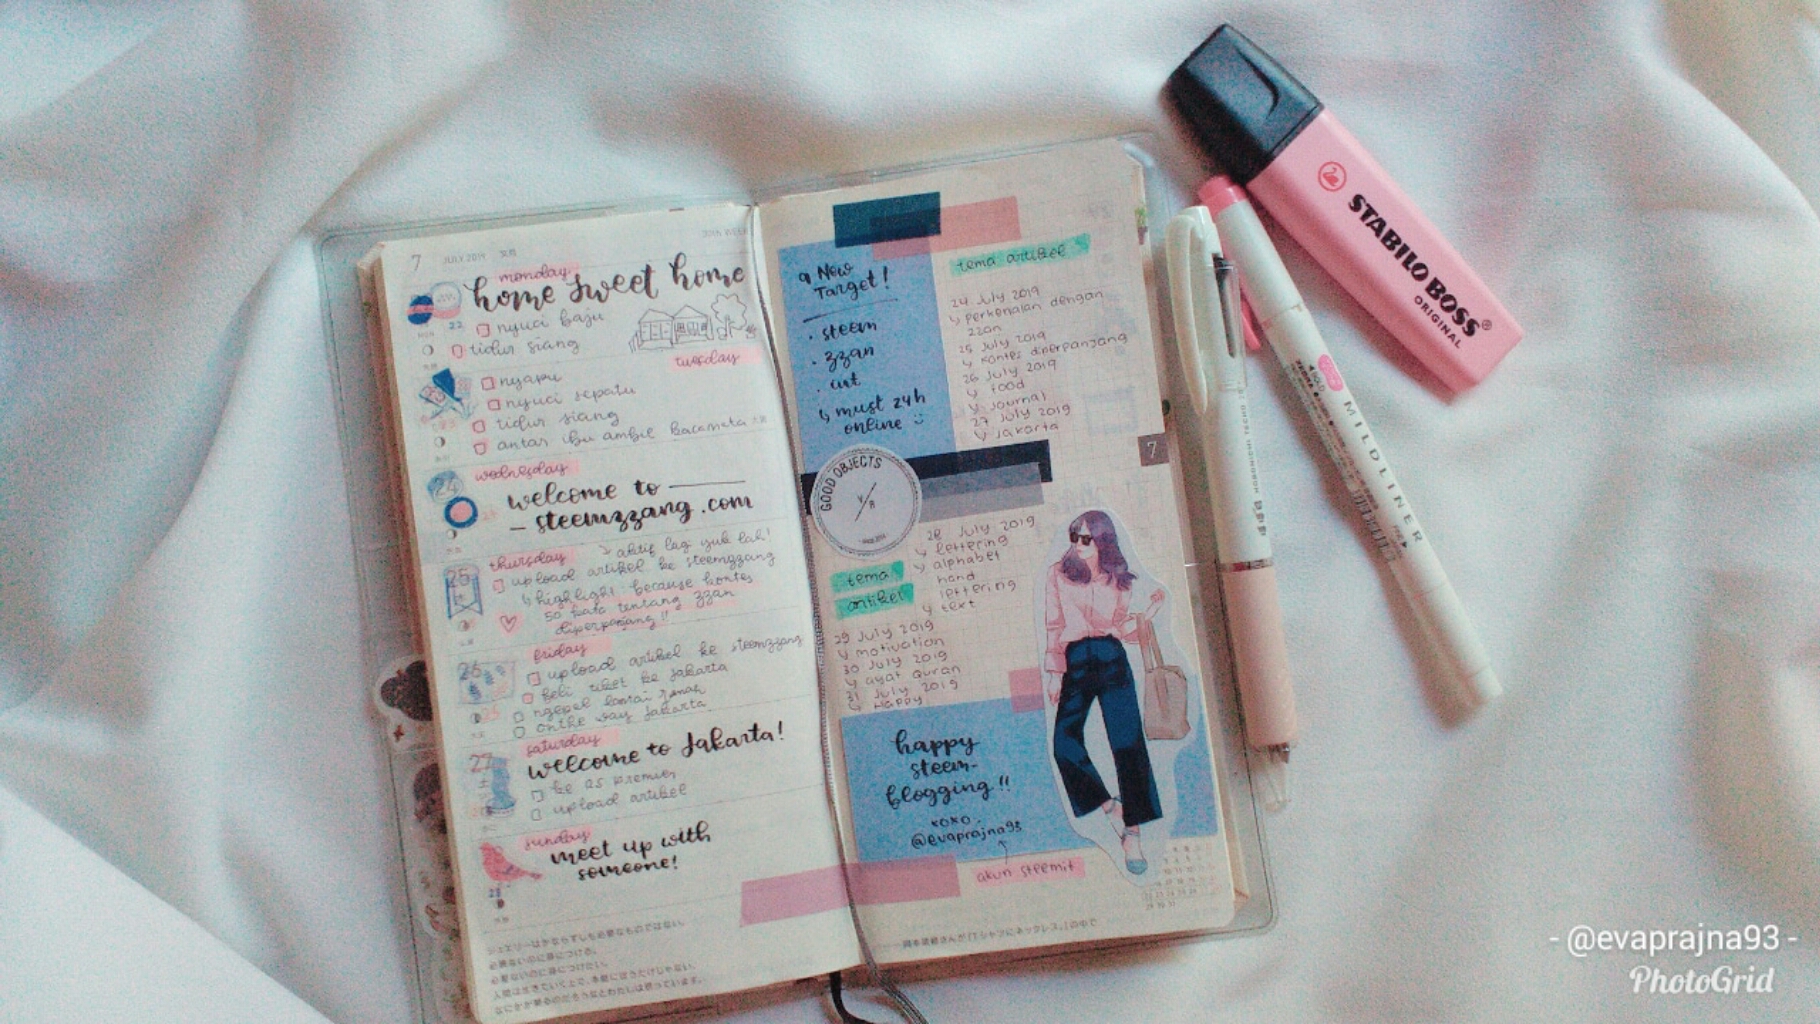 7 JULY 2019 文月
30th WEEK
monday
home sweet home
22
nyuci baju
tidur siang
tuesday
nyapu
nyuci sepatu
tidur siang
antar ibu ambil kacamata
wednesday
24
welcome to
- steemzzang.com
thursday
aktif lagi yuk lah!
25
upload artikel ke steemzzang
highlight: because kontes
50 kata tentang zzan
diperpanjang!!
friday
26
upload artikel ke steemzzang
beli tiket ke Jakarta
ngepel lantai rumah
on the way Jakarta
saturday
27
welcome to Jakarta!
upload artikel
sunday
meet up with
someone!
ジュエリーはかならずしも必要なものではない。
必要ないのに身につける。
必要ないのに身につけたい。
a New
Target!
• steem
• zzan
• cut
must 24h
online
tema artikel
24 July 2019
perkenalan dengan
zzan
25 July 2019
kontes diperpanjang
26 July 2019
food
journal
27 July 2019
Jakarta
7
GOOD OBJECTS
28 July 2019
lettering
alphabet
hand
lettering
text
tema
artikel
29 July 2019
motivation
30 July 2019
ayat Quran
31 July 2019
Happy
happy
steem-
blogging!!
xoxo.
@evaprajna93
akun steemit
STABILO BOSS®
ORIGINAL
MILDLINER
- @evaprajna93 -
PhotoGrid